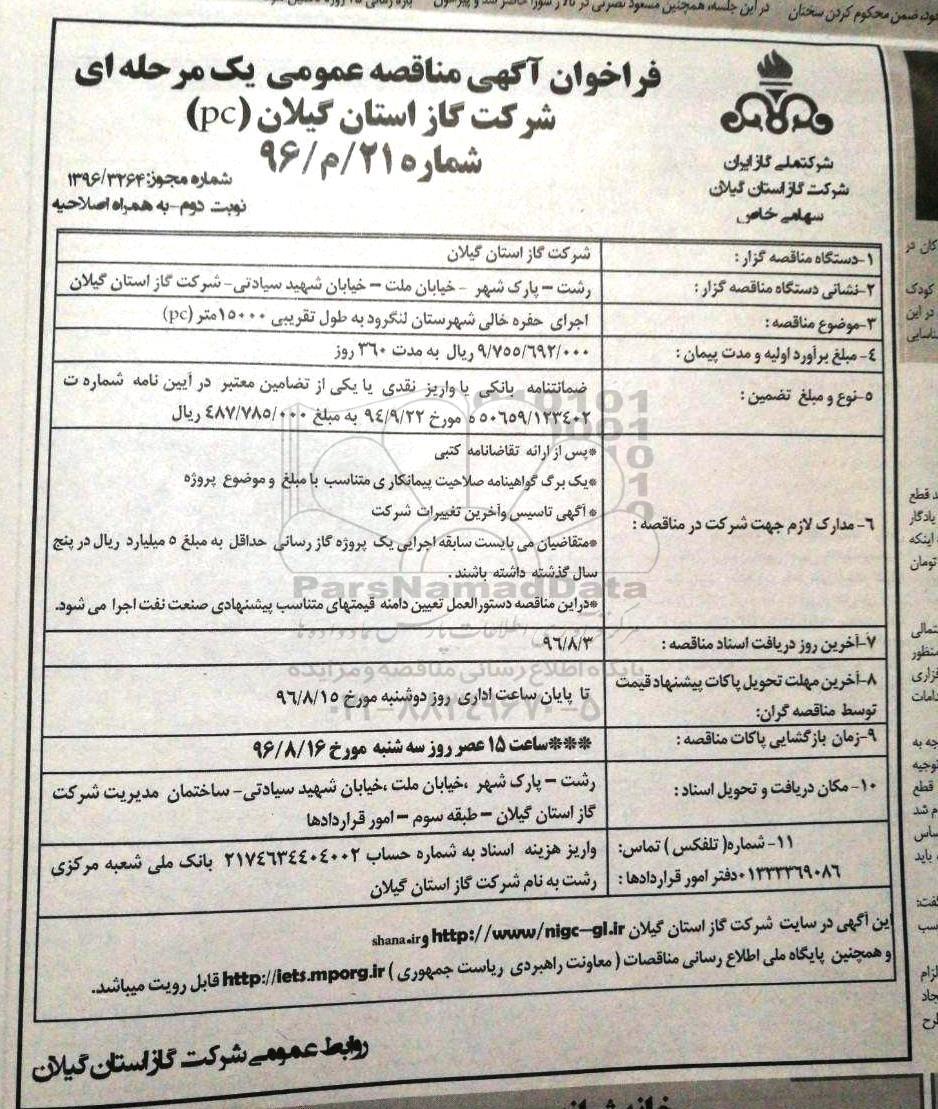 فراخوان آگهی مناقصه عمومی یک مرحله ای
شرکت گاز استان گیلان (pc)
شماره ۲۱/م/۹۶
شماره مجوز: ۱۳۹۶/۳۲۶۴
نوبت دوم-به همراه اصلاحیه
شرکتملی گاز ایران
شرکت گاز استان گیلان
سهامی خاص
۱-دستگاه مناقصه گزار :
شرکت گاز استان گیلان
۲-نشانی دستگاه مناقصه گزار :
رشت – پارک شهر - خیابان ملت – خیابان شهید سیادتی- شرکت گاز استان گیلان
۳-موضوع مناقصه :
اجرای حفره خالی شهرستان لنگرود به طول تقریبی ۱۵۰۰۰متر (pc)
۴- مبلغ برآورد اولیه و مدت پیمان :
۹/۷۵۵/۶۹۲/۰۰۰ ریال به مدت ۳۶۰ روز
۵-نوع و مبلغ تضمین :
ضمانتنامه بانکی یا واریز نقدی یا یکی از تضامین معتبر در آیین نامه شماره ت
۵۰۶۵۹/۱۲۳۴۰۲ ه مورخ ۹۴/۹/۲۲ به مبلغ ۴۸۷/۷۸۵/۰۰۰ ریال
۶- مدارک لازم جهت شرکت در مناقصه :
*پس از ارائه تقاضانامه کتبی
*یک برگ گواهینامه صلاحیت پیمانکاری متناسب با مبلغ و موضوع پروژه
* آگهی تاسیس وآخرین تغییرات شرکت
*متقاضیان می بایست سابقه اجرایی یک پروژه گاز رسانی حداقل به مبلغ ۵ میلیارد ریال در پنج
سال گذشته داشته باشند .
*دراین مناقصه دستورالعمل تعیین دامنه قیمتهای متناسب پیشنهادی صنعت نفت اجرا می شود.
۷-آخرین روز دریافت اسناد مناقصه :
۹۶/۸/۳
۸-آخرین مهلت تحویل پاکات پیشنهاد قیمت
توسط مناقصه گران:
تا پایان ساعت اداری روز دوشنبه مورخ ۹۶/۸/۱۵
۹-زمان بازگشایی پاکات مناقصه :
***ساعت ۱۵ عصر روز سه شنبه مورخ ۹۶/۸/۱۶
۱۰- مکان دریافت و تحویل اسناد :
رشت – پارک شهر ،خیابان ملت ،خیابان شهید سیادتی- ساختمان مدیریت شرکت
گاز استان گیلان – طبقه سوم – امور قراردادها
۱۱- شماره( تلفکس ) تماس:
۰۱۳۳۳۳۶۹۰۸۶دفتر امور قراردادها :
واریز هزینه اسناد به شماره حساب ۲۱۷۴۶۳۴۴۰۴۰۰۲ بانک ملی شعبه مرکزی
رشت به نام شرکت گاز استان گیلان
این آگهی در سایت شرکت گاز استان گیلان http://www/nigc-gl.ir و shana.ir
و همچنین پایگاه ملی اطلاع رسانی مناقصات ( معاونت راهبردی ریاست جمهوری ) http://iets.mporg.ir قابل رویت میباشد.
روابط عمومی شرکت گاز استان گیلان
ParsNamadData
پایگاه اطلاع رسانی مناقصه و مزایده